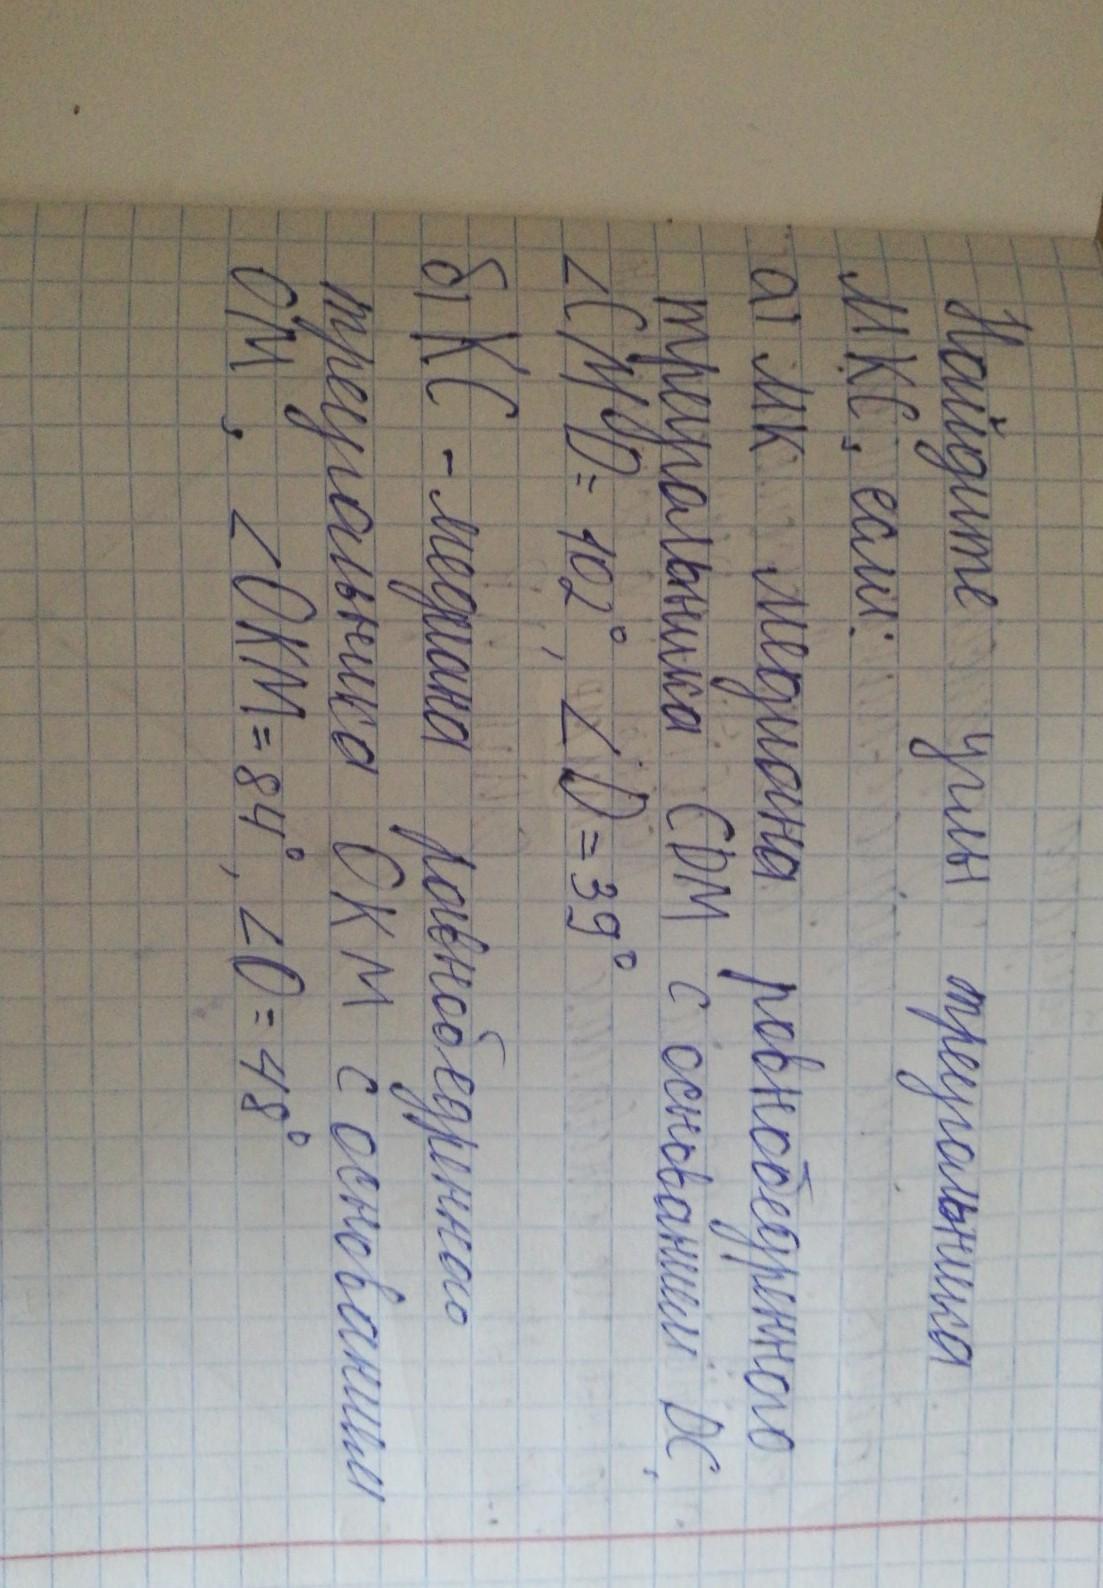 Найдите углы треугольника
МКС, если:
а) МК медиана равнобедренного
треугольника CDM с основанием DC,
∠CMD = 102°, ∠D = 39°
б) КС - медиана равнобедренного
треугольника ОКМ с основанием
ОМ, ∠ОКМ = 84°, ∠О = 48°